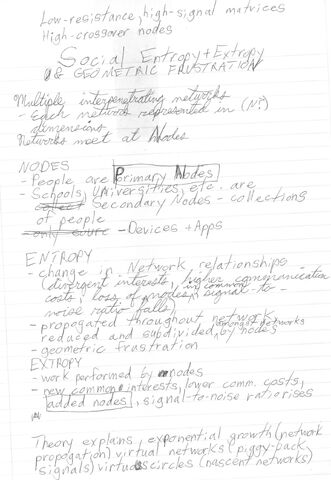 Low-resistance, high-signal matrices
High-crossover nodes
Social Entropy + Extropy
& GEOMETRIC FRUSTRATION
Multiple interpenetrating networks
- Each network represented in (N?)
dimensions
Networks meet at Nodes
NODES
- People are Primary Nodes
- Schools, Universities, etc. are
Secondary Nodes - collections
of people
- Devices + Apps
ENTROPY
- change in Network relationships
(divergent interests, higher communication
costs, loss of nodes in common, signal-to-
noise ratio falls)
- propagated throughout network,
reduced and subdivided, by nodes amongst networks
- geometric frustration
EXTROPY
- work performed by nodes
- new common interests, lower comm. costs,
added nodes, signal-to-noise ratio rises
Theory explains, exponential growth (network
propogation) virtual networks (piggy-pack
signals) virtuous circles (nascent networks)